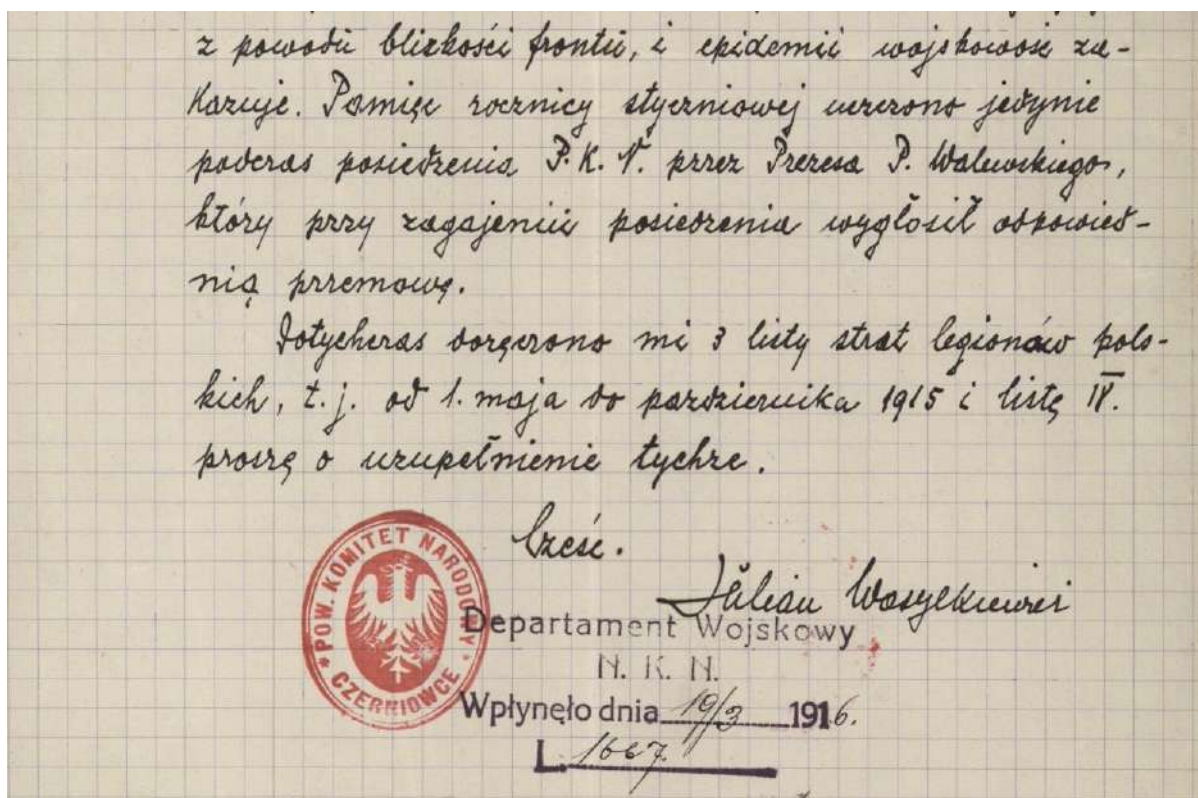 z powodu blizkości frontu, i epidemii wojskowość za-
kazuje. Pamięć rocznicy styczniowej uczczono jedynie
podczas posiedzenia P. K. N. przez Prezesa P. Walewskiego,
który przy zagajeniu posiedzenia wygłosił odpowied-
nią przemowę.
Dotychczas doręczono mi 3 listy strat legionów pols-
kich, t. j. od 1. maja do października 1915 i listę IV.
proszę o uzupełnienie tychże.
Cześć.
Julian Wasylkiewicz
POW. KOMITET NARODOWY
CZERNIOWCE
Departament Wojskowy
N. K. N.
Wpłynęło dnia 19/3 1916.
L. 1667